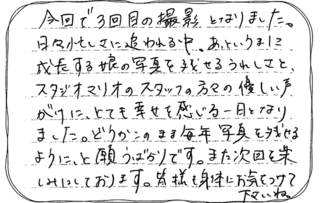 今回で3回目の撮影となりました。
日々忙しさに追われる中、あっというまに
成長する娘の写真を残せるうれしさと、
スタジオマリオのスタッフの方々の優しい声
がけに、とても幸せを感じる一日となり
ました。どうかこのまま毎年写真を残せる
ように、と願うばかりです。また次回を楽
しみにしております。皆様も身体にお気をつけて
下さいね。